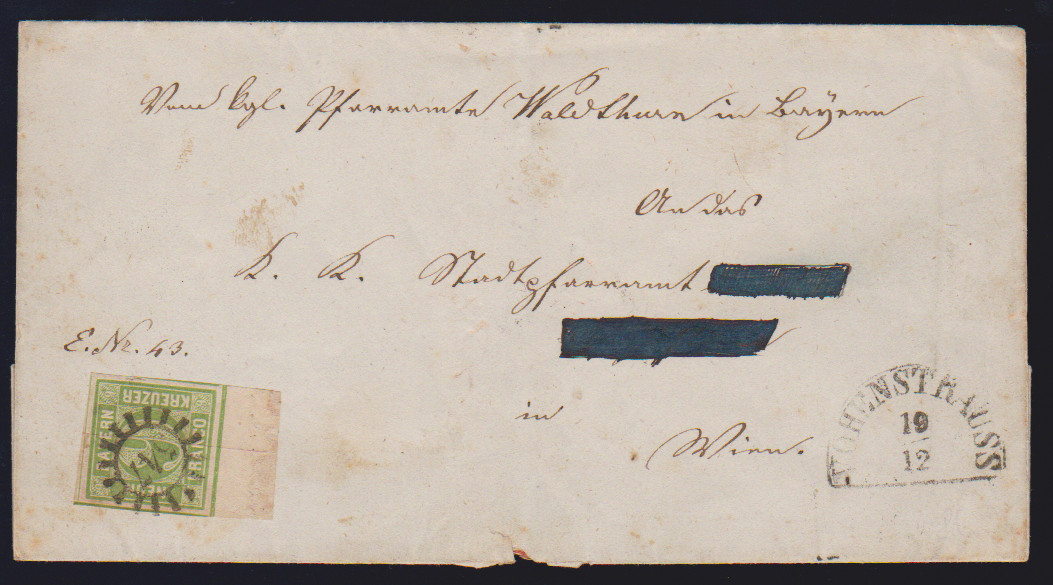 Vom kgl. Pfarramte Waldthurn in Bayern
An das
K. K. Stadtpfarramt
E. Nr. 43.
in
Wien.
BAYERN
KREUZER
FRANCO
VOHENSTRAUSS
19
12